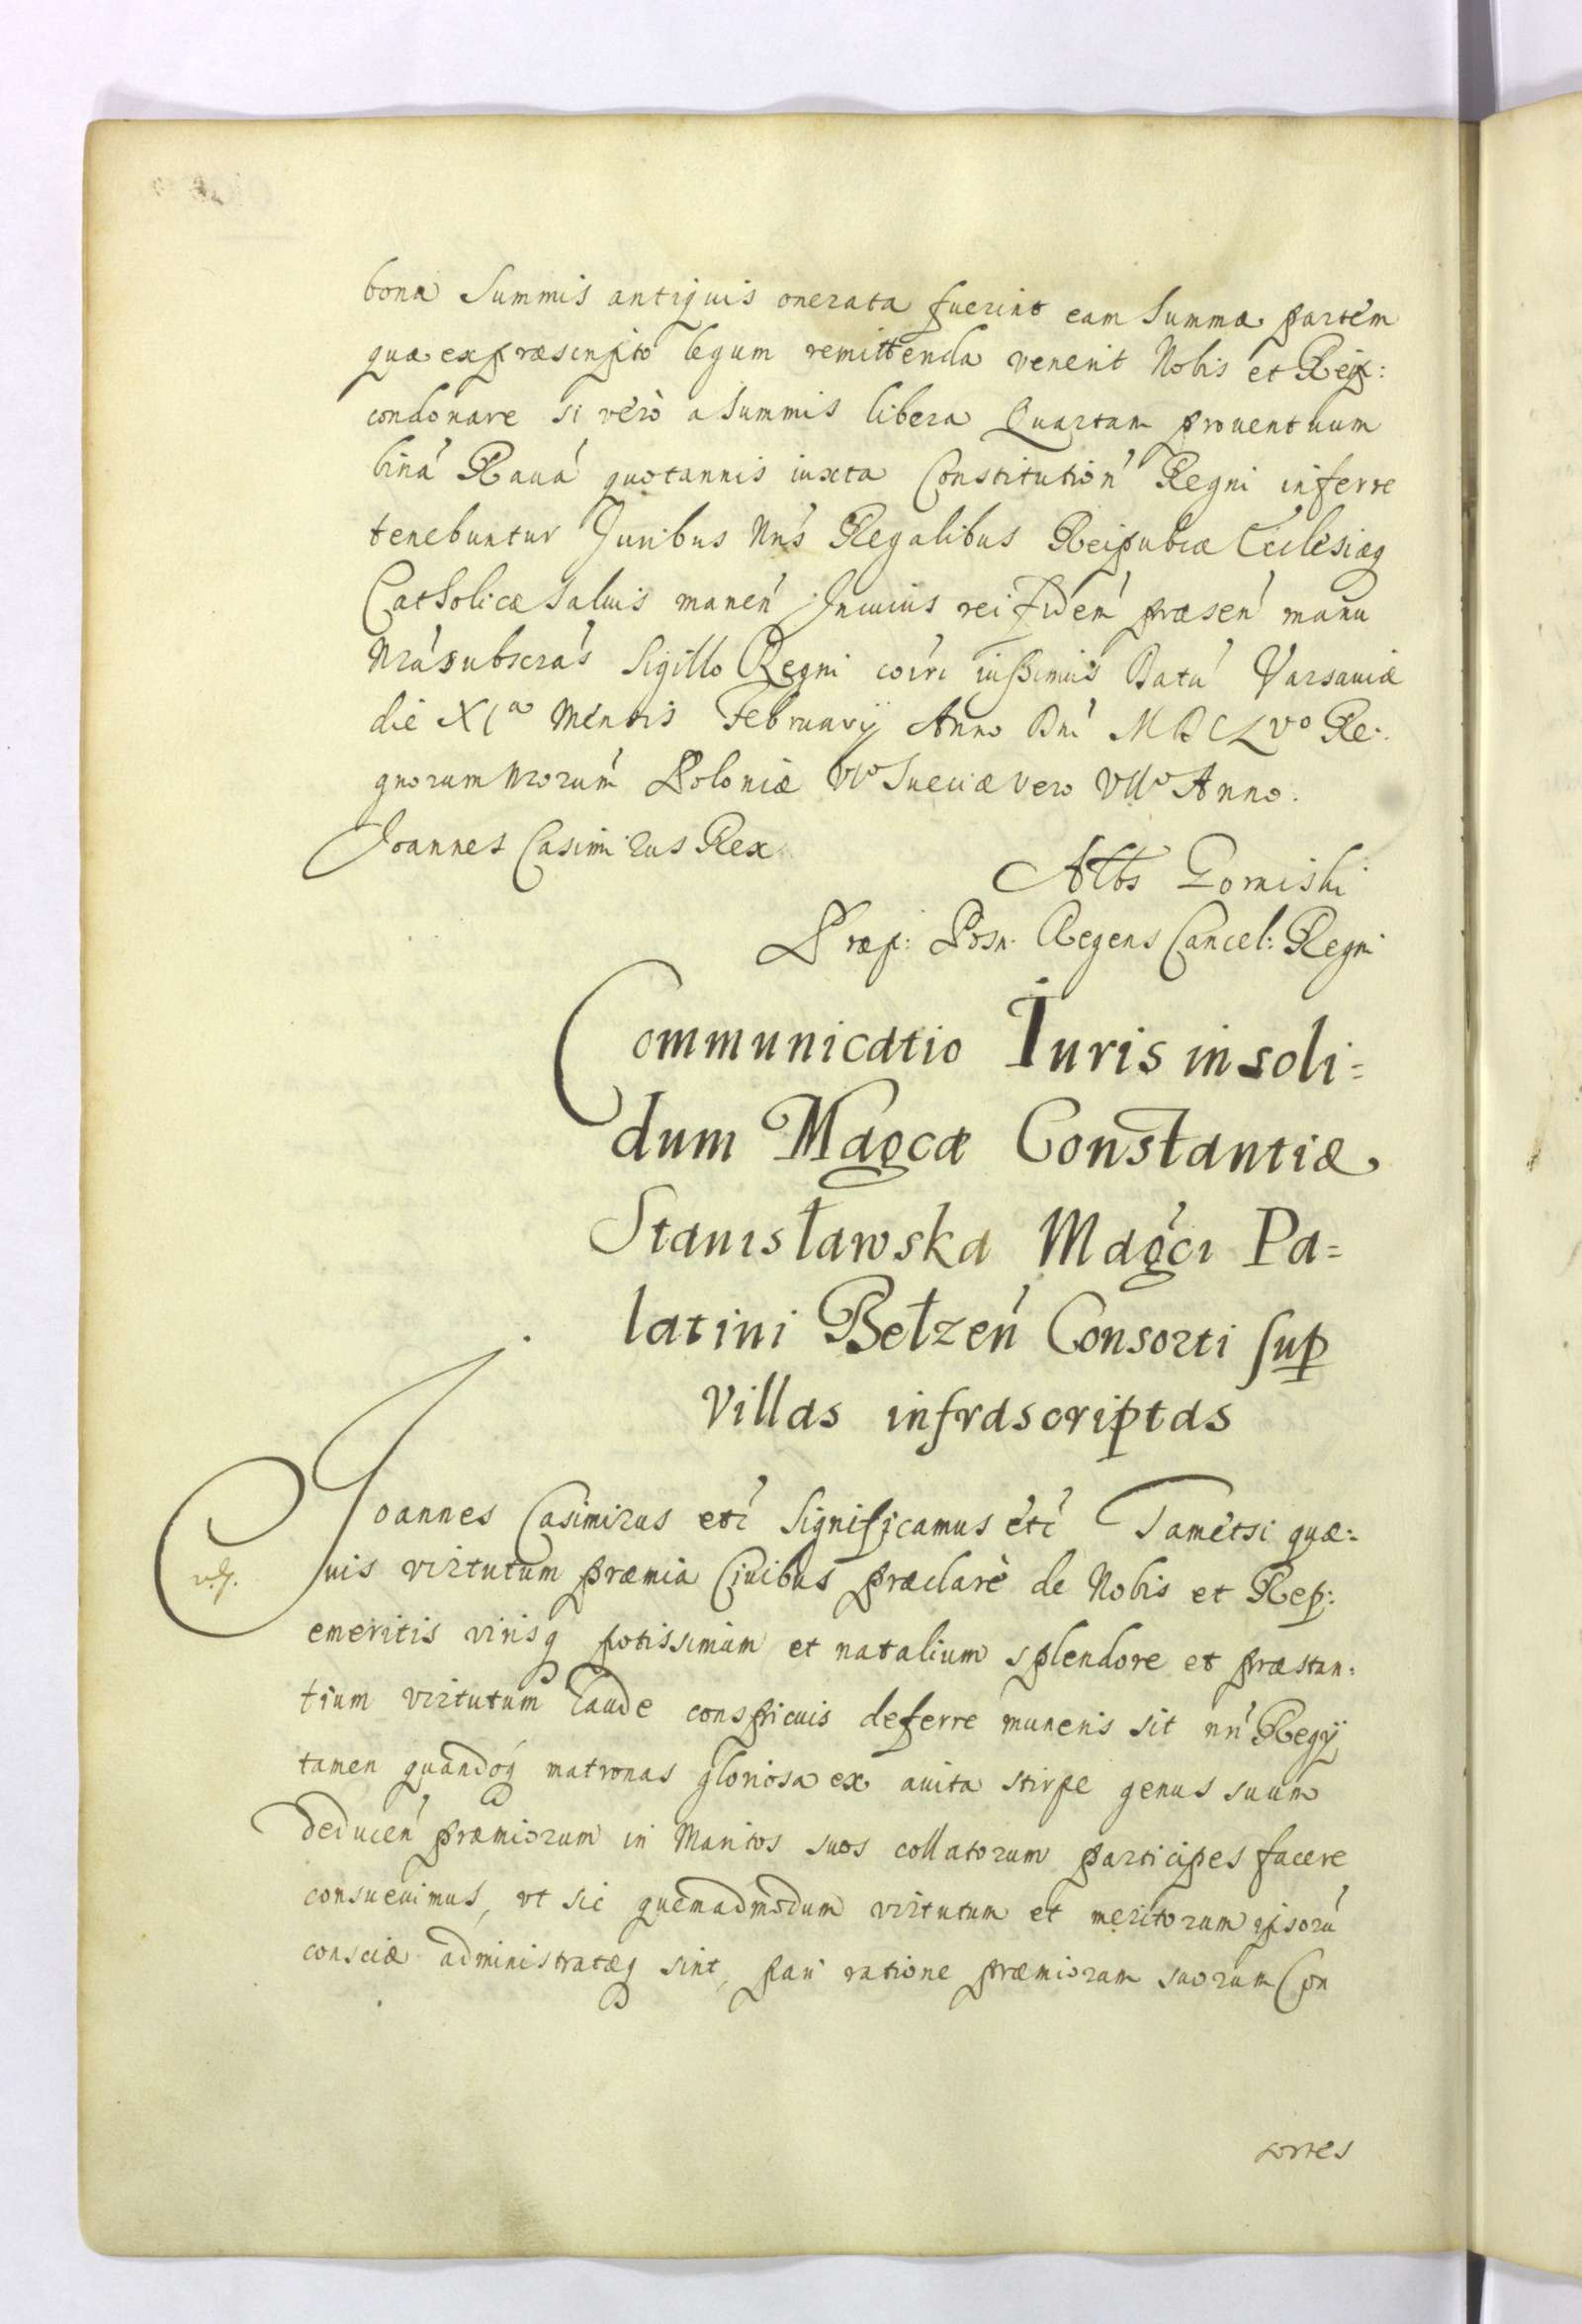 bona Summis antiquis onerata fuerint eam Summæ partem
quæ ex præscripto legum remittenda venerit Nobis et Reip:
condonare si verò a Summis libera Quartam prouentuum
biná Rauá quotannis iuxta Constitution Regni inferre
tenebuntur Iuribus Nris Regalibus Reipubcæ Ecclesiæq
Catholicæ Saluis manen In cuius rei fidem præsen manu
Nrá subscrás Sigillo Regni coīri iussimus Datú Varsauiæ
die XIa Mensis February Anno Dni MDCLVo Re:
gnorum Nrorum Poloniæ VIo Sueciæ vero VIIo Anno.
Joannes Casimirus Rex
Albs
Præp: Posn. Regens Cancel: Regni
Communicatio Iuris in soli=
dum Magcæ Constantiæ
Stanisławska Magci Pa=
latini Bełzen Consorti sup
Villas infrascriptas
Joannes Casimirus etc Significamus etc Tametsi quæ:
uis virtutum præmia Ciuibus præclarè de Nobis et Rep:
emeritis virisq potissimùm et natalium splendore et præstan:
tium virtutum laude conspicuis deferre muneris sit nri Regÿ
tamen quandoq matronas gloriosa ex auita stirpe genus suum
deducen præmiorum in Maritos suos collatorum participes facere
consueuimus, vt sic quemadmodum virtutum et meritorum ipsorú
consciæ administratæq sint, pari ratione præmiorum suorum Con
sortes